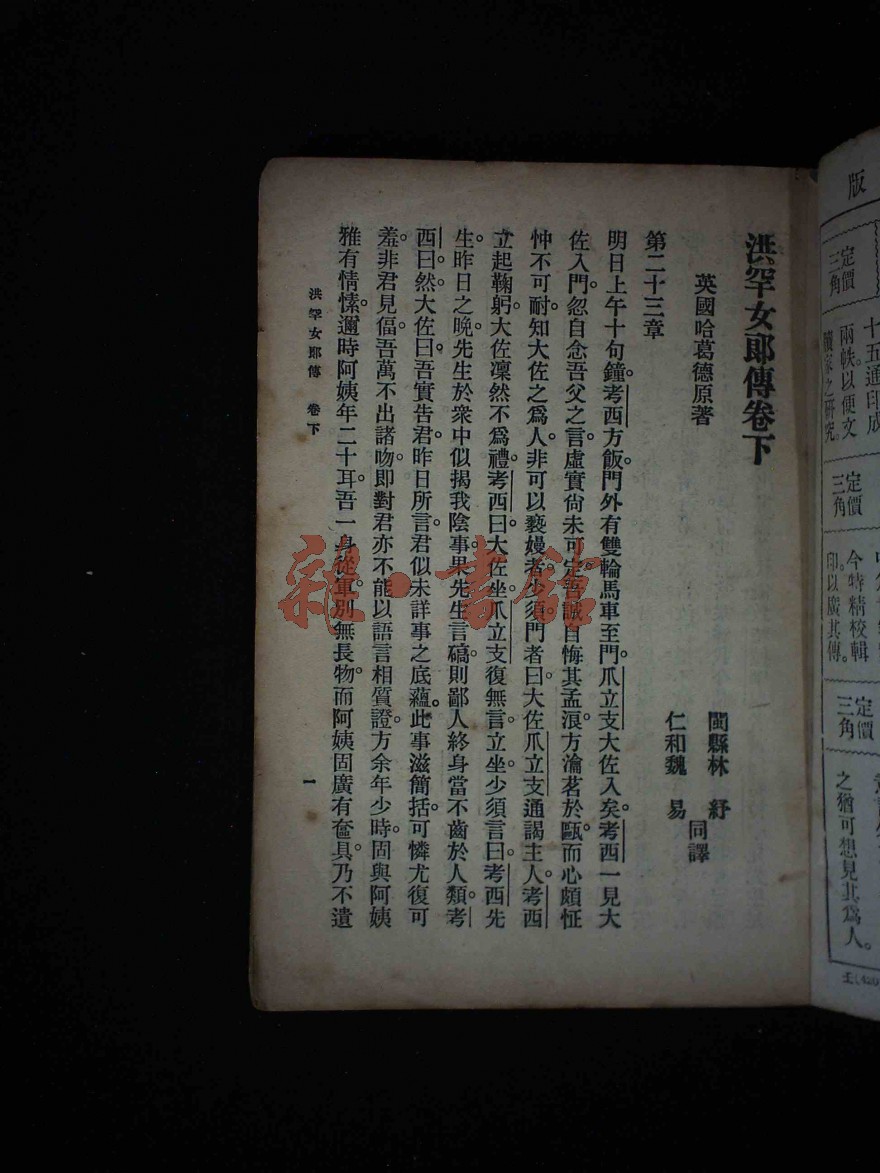 版
定價
三角
十五通印成
兩帙以便文
家之研究。
定價
三角
今特精校輯
印以廣其傳。
定價
三角
之猶可想見其爲人。
洪罕女郎傳卷下
英國哈葛德原著
閩縣林　紓
仁和魏　易
同譯
第二十三章
明日上午十句鐘。考西方飯。門外有雙輪馬車至門。爪立支大佐入矣。考西一見大
佐入門。忽自念吾父之言。虛實尙未可定。吾誠自悔其孟浪。方瀹茗於甌。而心頗怔
忡不可耐。知大佐之爲人。非可以褻嫚者。少須。門者曰。大佐爪立支通謁主人。考西
立起鞠躬。大佐凜然不爲禮。考西曰。大佐坐。爪立支復無言。立坐。少須言曰。考西先
生。昨日之晚。先生於衆中似揭我陰事。果先生言碻。則鄙人終身當不齒於人類。考
西曰。然。大佐曰。吾實告君。昨日所言。君似未詳事之底蘊。此事滋簡括。可憐尤復可
羞。非君見偪。吾萬不出諸吻。卽對君亦不能以語言相質證。方余年少時。固與阿姨
雅有情愫。邇時阿姨年二十耳。吾一身從軍。別無長物。而阿姨固廣有奩具。乃不遺
洪罕女郎傳　卷下
一
雜·書館